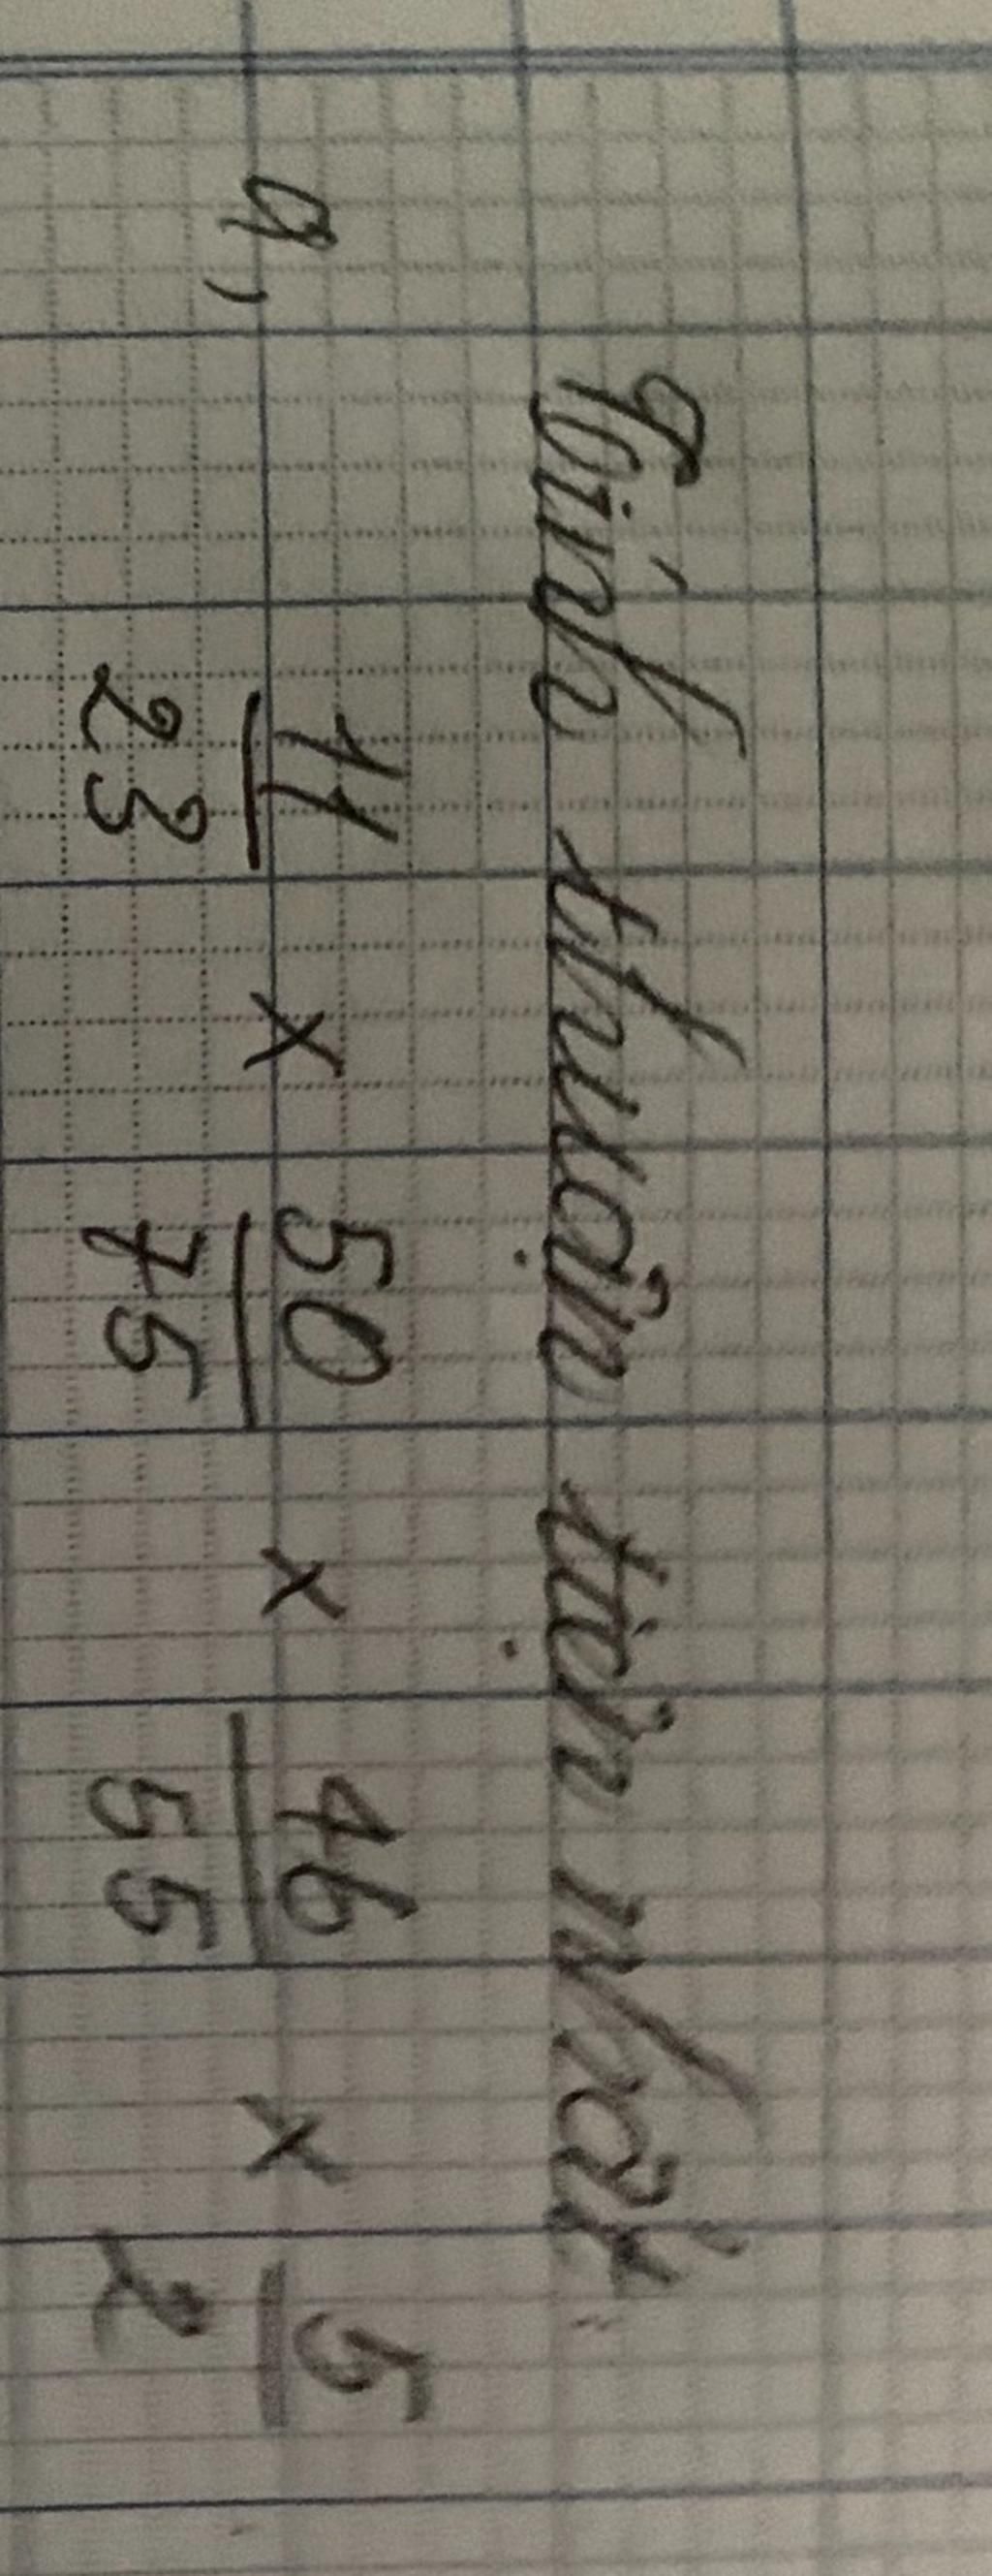 Tính thuận tiện nhất
a, 11/23 x 50/75 x 46/55 x 5/2